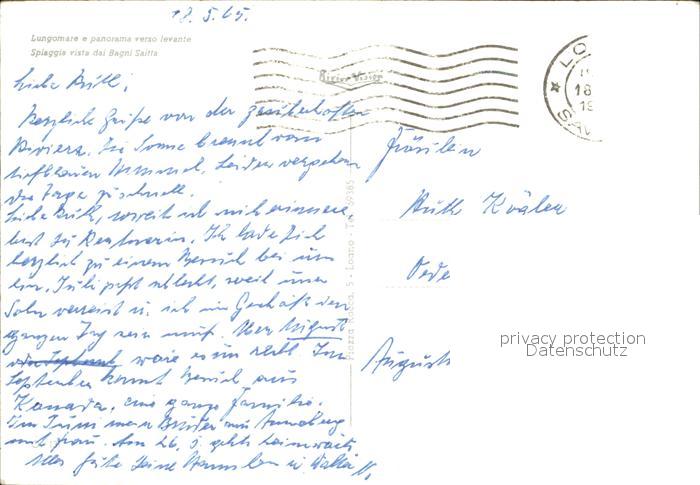 18.5.65.
Lungomare e panorama verso levante
Spiaggia vista dai Bagni Saitta
Riviera Vision
LO
18
19
S
Liebe Ruth,
Herzliche Grüße von der zauberhaften
Riviera. Die Sonne brennt vom
tiefblauen Himmel, leider vergehen
die Tage zu schnell.
Liebe Ruth, soweit ich mich erinnere
hast Du Ich lade Dich
herzlich zu einem Besuch bei uns
ein. Juli paßt schlecht, weil unser
Sohn verreist u. ich im Geschäft den
ganzen Tag sein muß. Aber August
oder Septemb. wäre es uns recht. Im
September kommt Besuch aus
Kanada, eine ganze Familie.
Im Juni mein Bruder aus
mit Frau. Am 26. 5. geht's heimwärts
Alles Gute Deine u.
Piazza Rocca, 5 - Loano - Tel. 69185
Fräulein
Ruth
Oede
privacy protection
Datenschutz